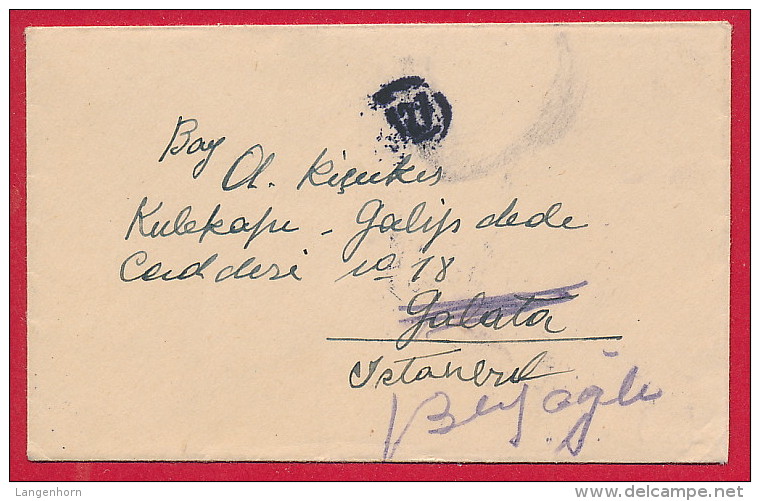 Bay
A. Kiçukes
Kulekapu - Galip dede
Caddesi no 18
Galata
Istanbul
Beyoğlu
Langenhorn
delcampe.net